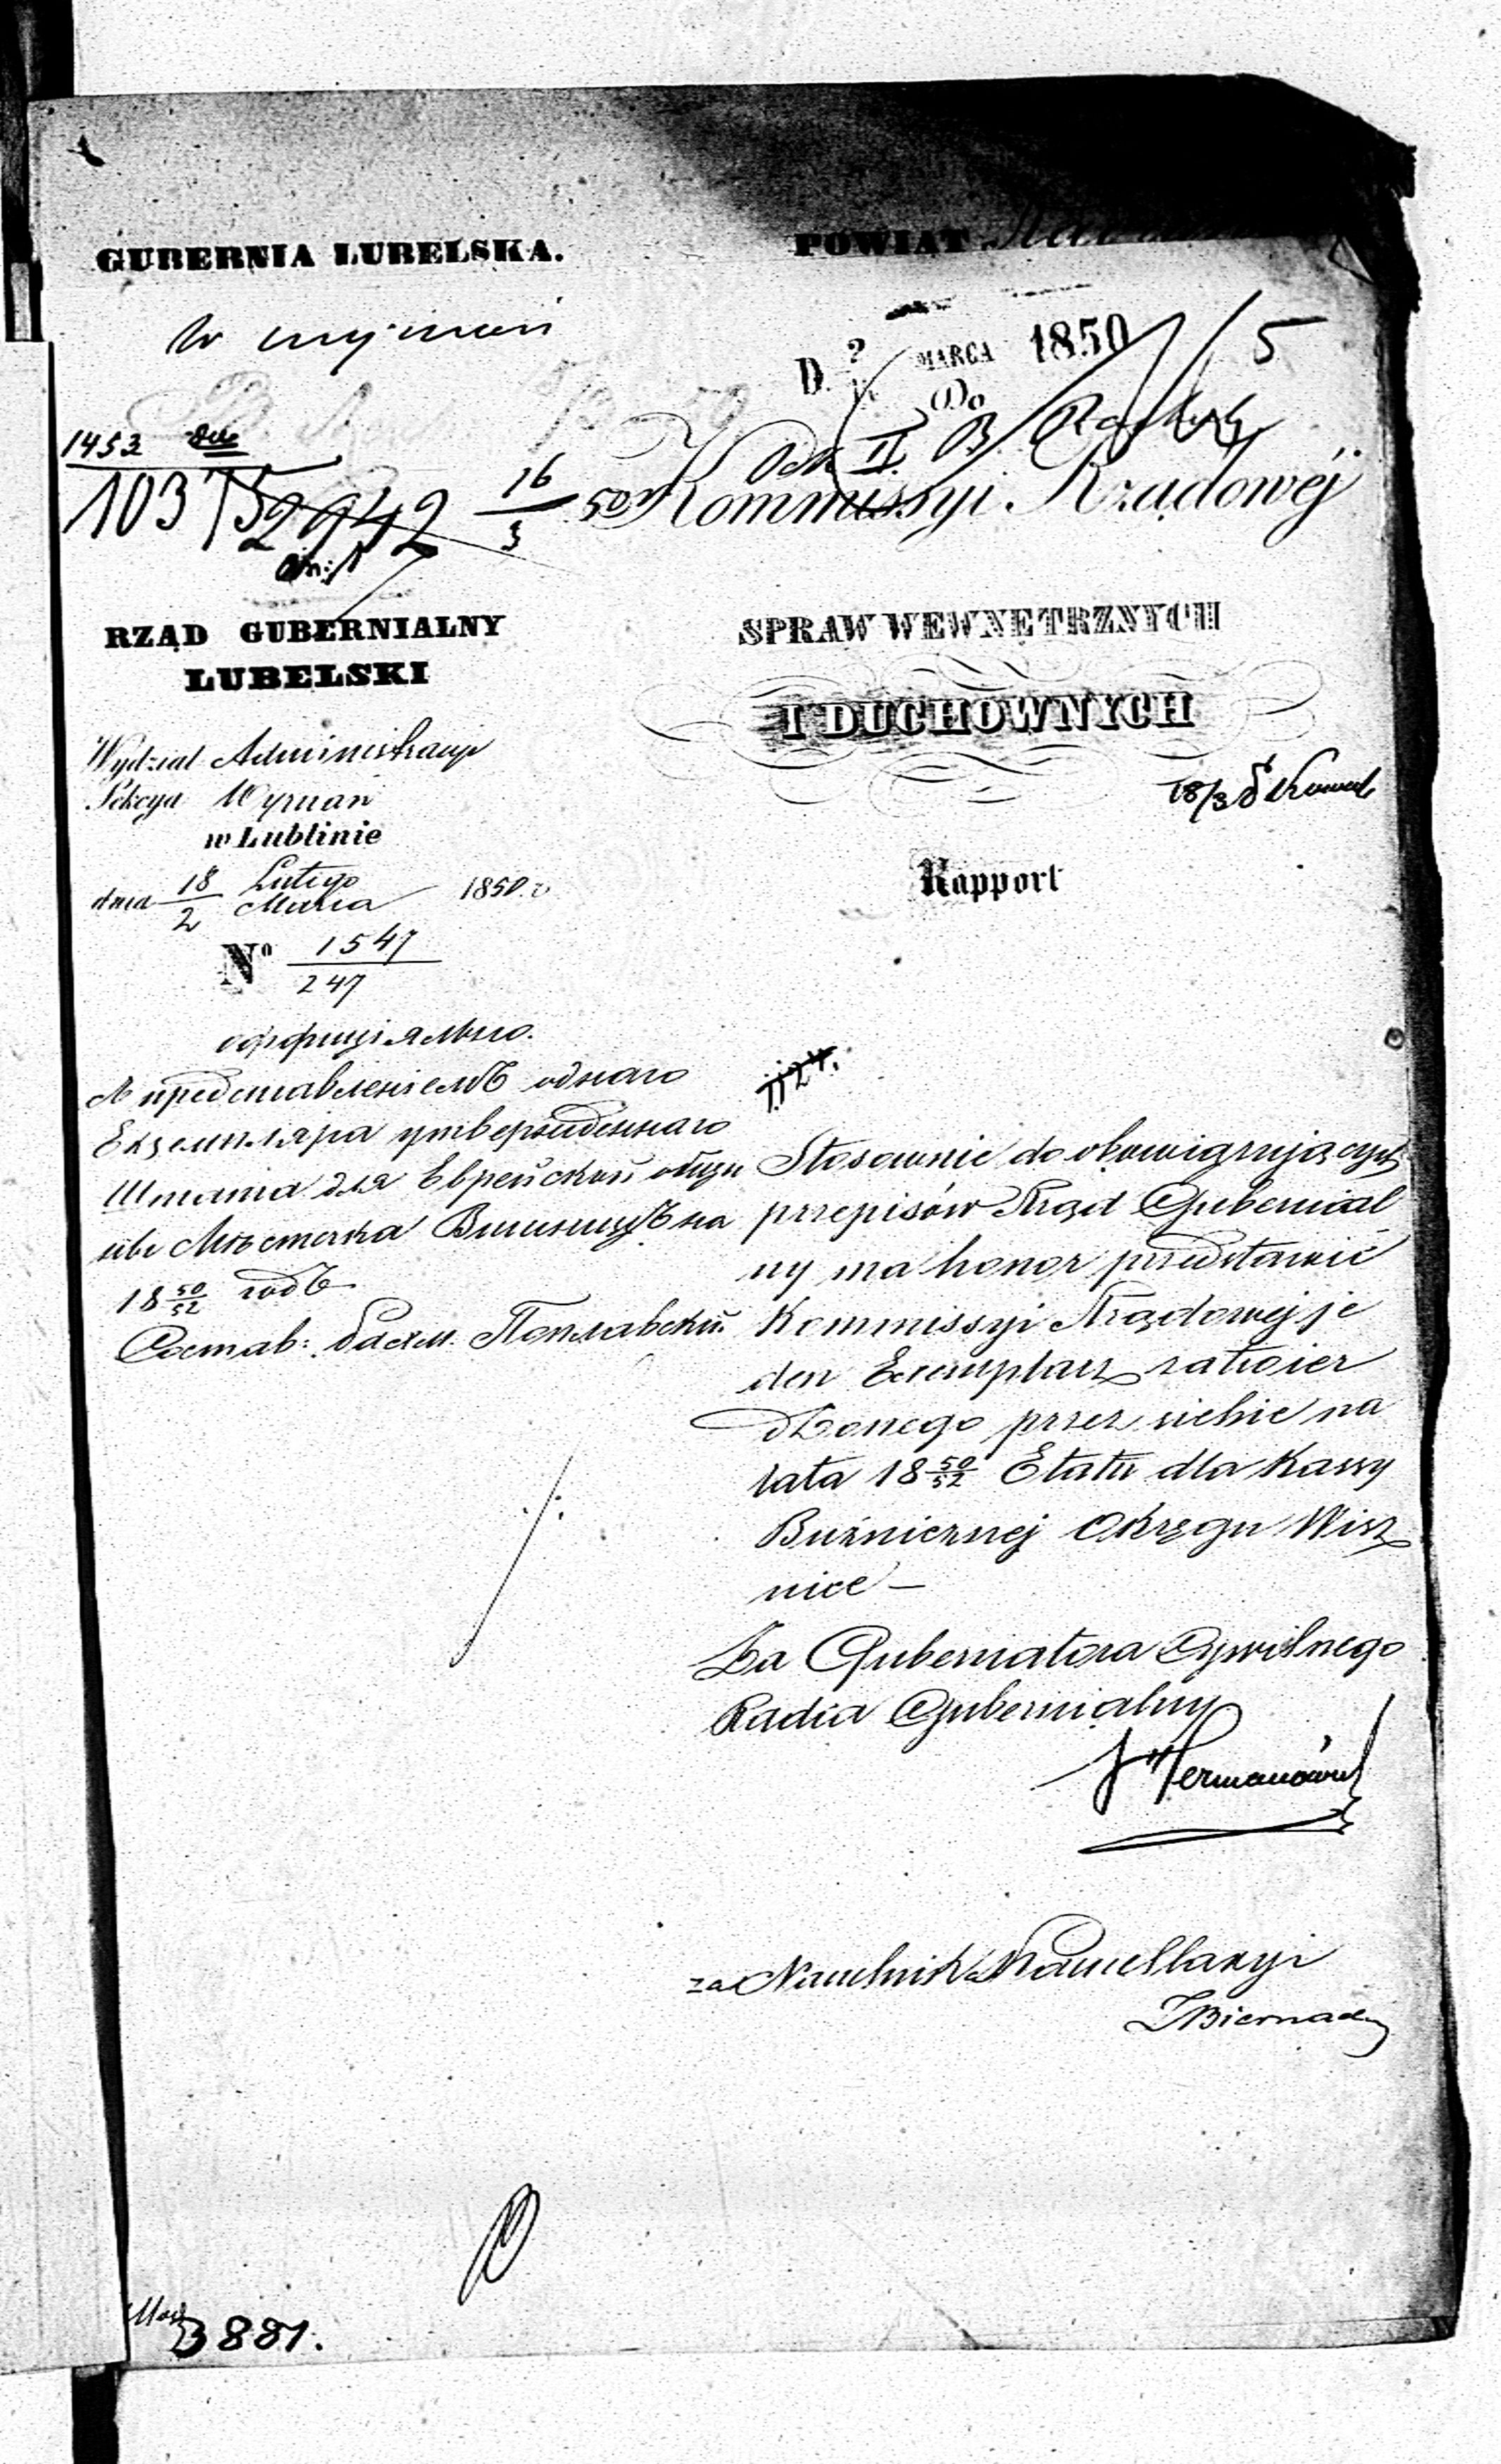 GUBERNIA LUBELSKA.
POWIAT
D. MARCA 1850
5
Do
1453
10375
2942
16/3 50
Kommissyi Rządowéj
RZĄD GUBERNIALNY
LUBELSKI
SPRAW WEWNĘTRZNYCH
I DUCHOWNYCH
Wydział Administracyi
Sekcya Wyznań
w Lublinie
18/3
dnia 18/2 Lutego/Marca 1850 r
Rapport
Nº 1547/247
оффиціяльно.
Съ представленіемъ однаго
Екземпляра утвержденнаго
Штата для Еврейской общи
ны Мѣстечка Вишницъ на
18 50/52 годъ
Состав: Поплавскій.
Stosownie do obowiązujących
przepisów Rząd Gubernial
ny ma honor przedstawić
Kommissyi Rządowej je
den Exemplarz zatwier
dzonego przez siebie na
lata 18 50/52 Etatu dla Kassy
Bużnicznej Okręgu Wisz
nice –
Za Gubernatora Cywilnego
Radca Gubernialny
za Naczelnik Kancellaryi
3881.